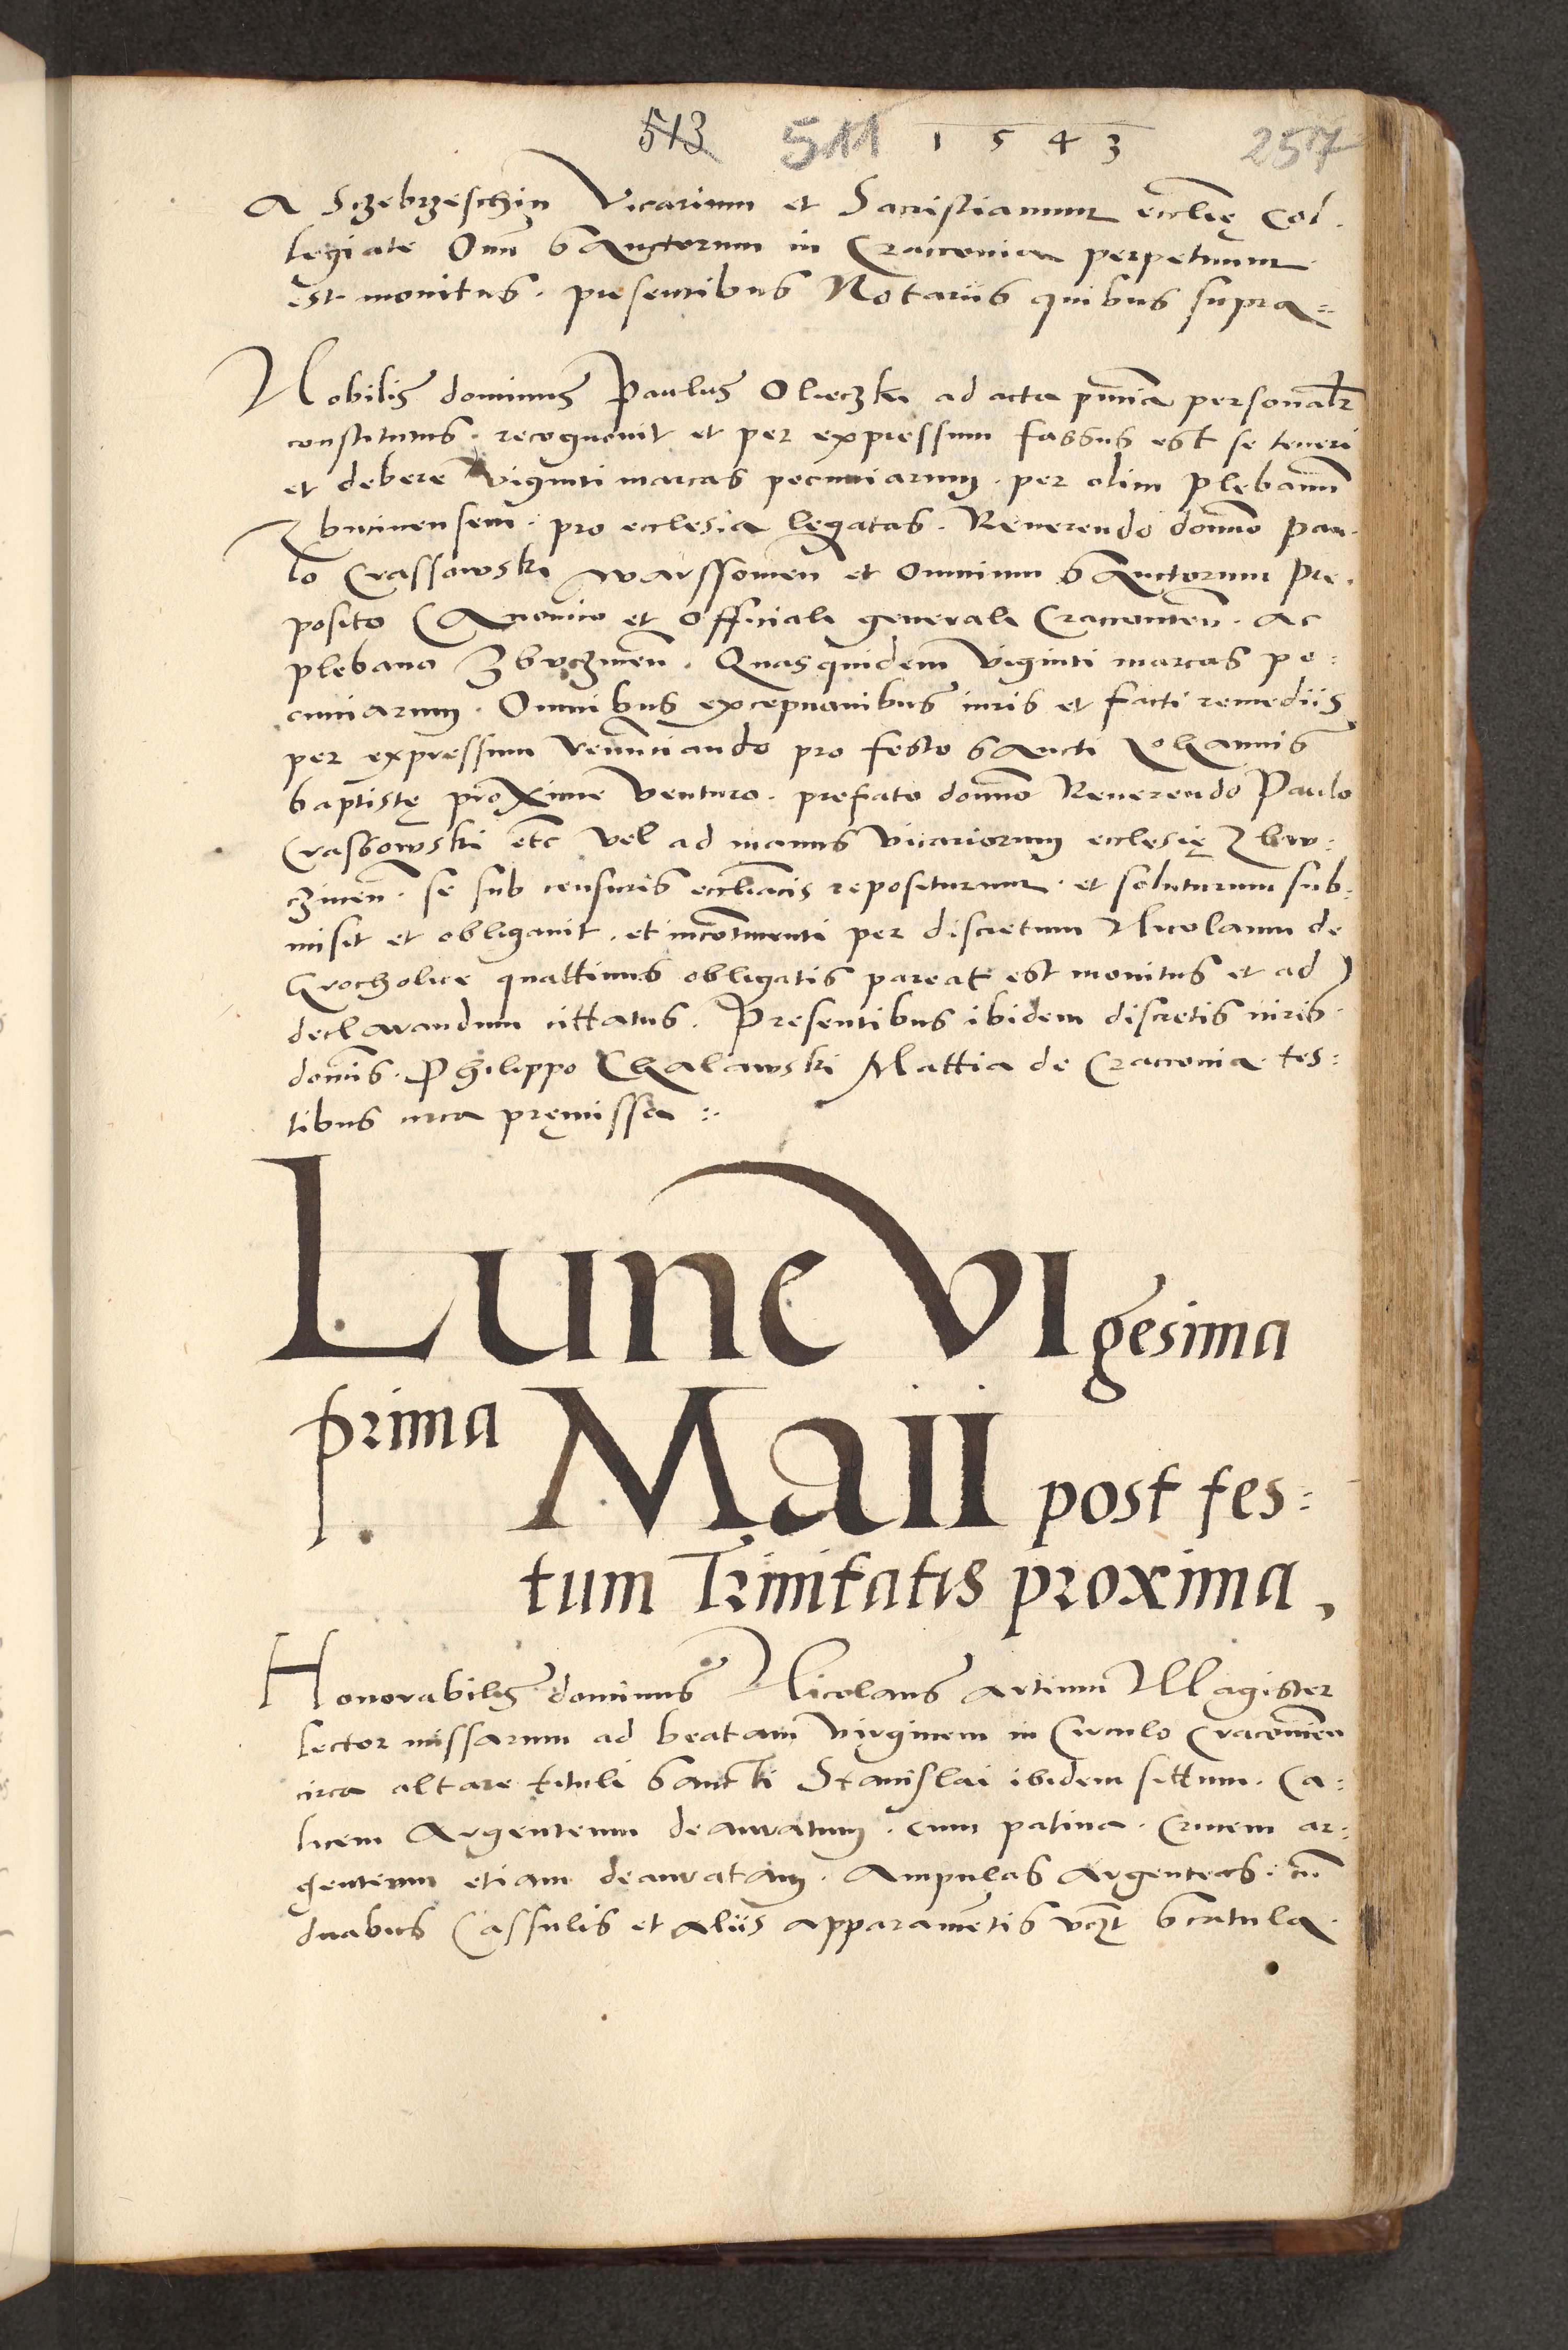 513 511 1543 257
A Sczebrzeschin Vicarium et Sacristianum eccl̄ię Col-
legiate Om̄ Sanctorum in Cracouia perpetuum
est monitus. presentibus Notariis quibus supra
Nobilis dominus Paulus Olieczki ad acta pn̄tia personal̄r
constitutus. recognouit et per expressum fassus est se teneri
et debere viginti marcas pecuniarum. per olim Plebanum
Zbucinensem. pro ecclesia legatas. Reuerendo domno Pau-
lo Crassowski Warssouien̄ et Omnium Sanctorum Pre-
posito Canonico et Officiali generali Cracouien̄. Ac
plebano Zbuczinen̄. Quasquidem viginti marcas pe:
cuniarum. Omnibus excepcionibus iuris et facti remediis
per expressum renunciando pro festo Sancti Iohannis
baptistę proxime venturo. prefato domno Reuerendo Paulo
Crassowski etc vel ad manus vicariorum ecclesię Zbw:
czinen̄. se sub censuris eccl̄iacis repositurum. et soluturum sub-
misit et obligauit. et incontinenti per discretum Nicolaum de
Grocholice quattinus obligatis pareat est monitus et ad
declarandum cittatus. Presentibus ibidem discretis viris
domīs. Philippo Chalawski Mattia de Cracouia tes:
tibus circa pręmissa :.
Lune VIgesima
prima Maii post fes:
tum Trinitatis proxima,
Honorabilis dominus Nicolaus artium Magister
Lector missarum ad beatam virginem in Circulo Cracouien̄
circa altare tituli Sancti Stanislai ibidem sittum. Ca:
licem Argenteum deauratum. cum patina. Crucem ar:
genteum etiam deauratam. Ampulas Argenteas. cū
duabus Cassulis et aliis apparamētis Scatula